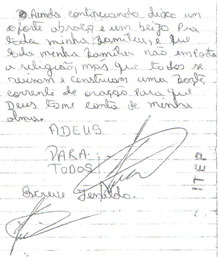 Ainda continuando, deixo um
forte abraço e um beijo pra
toda minha família, e que
toda minha família não importa
a religião, mas que todos se
reunam e construam uma forte
corrente de oração para que
Deus tome conta de minha
alma.
ADEUS
PARA
TODOS
ITEP
Escreve